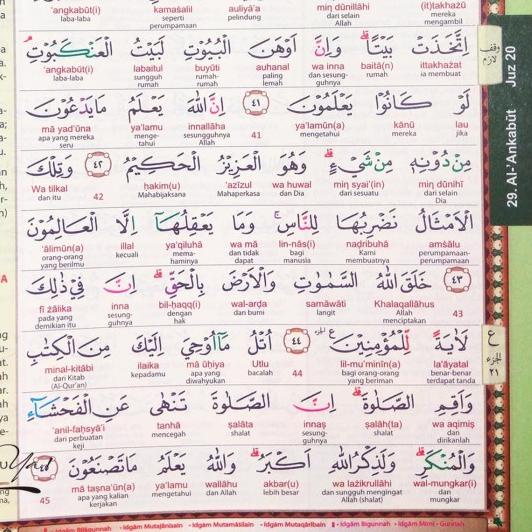 (it)takhażū miņ dūnillāhi auliyā'a kamaṡalil 'angkabūt(i)
mereka mengambil dari selain Allah pelindung seperti perumpamaan laba-laba
اِتَّخَذَتْ بَيْتًاۗ وَاِنَّ اَوْهَنَ الْبُيُوْتِ لَبَيْتُ الْعَنْكَبُوْتِۘ
ittakhażat baitā(n) wa inna auhanal buyūti labaitul 'angkabūt(i)
ia membuat rumah dan sesungguhnya paling lemah rumah-rumah sungguh rumah laba-laba
لَوْ كَانُوْا يَعْلَمُوْنَ ٤١ اِنَّ اللّٰهَ يَعْلَمُ مَا يَدْعُوْنَ
lau kānū ya'lamūn(a) 41 innallāha ya'lamu mā yad'ūna
jika mereka mengetahui sesungguhnya Allah mengetahui apa yang mereka seru
مِنْ دُوْنِهٖ مِنْ شَيْءٍۗ وَهُوَ الْعَزِيْزُ الْحَكِيْمُ ٤٢ وَتِلْكَ
miņ dūnihī miņ syai'(in) wa huwal 'azīzul ḥakīm(u) 42 Wa tilkal
dari selain Dia dari sesuatu dan Dia Mahaperkasa Mahabijaksana dan itu
الْاَمْثَالُ نَضْرِبُهَا لِلنَّاسِۚ وَمَا يَعْقِلُهَآ اِلَّا الْعَالِمُوْنَ
amṡālu naḍribuhā lin-nās(i) wa mā ya'qiluhā illal 'ālimūn(a)
perumpamaan-perumpamaan Kami membuatnya bagi manusia dan tidak memahaminya kecuali orang-orang yang berilmu
٤٣ خَلَقَ اللّٰهُ السَّمٰوٰتِ وَالْاَرْضَ بِالْحَقِّۗ اِنَّ فِيْ ذٰلِكَ
43 Khalaqallāhus samāwāti wal-arḍa bil-ḥaqq(i) inna fī żālika
Allah menciptakan langit dan bumi dengan hak sesungguhnya pada yang demikian itu
لَاٰيَةً لِّلْمُؤْمِنِيْنَ ٤٤ اُتْلُ مَآ اُوْحِيَ اِلَيْكَ مِنَ الْكِتٰبِ
la'āyatal lil-mu'minīn(a) 44 Utlu mā ūḥiya ilaika minal-kitābi
benar-benar terdapat tanda bagi orang-orang yang beriman bacalah apa yang diwahyukan kepadamu dari Kitab (Al-Qur'an)
وَاَقِمِ الصَّلٰوةَۗ اِنَّ الصَّلٰوةَ تَنْهٰى عَنِ الْفَحْشَاۤءِ
wa aqimiṣ ṣalāh(ta) innaṣ ṣalāta tanhā 'anil-faḥsyā'i
dan dirikanlah salat sesungguhnya salat mencegah dari perbuatan keji
وَالْمُنْكَرِۗ وَلَذِكْرُ اللّٰهِ اَكْبَرُۗ وَاللّٰهُ يَعْلَمُ مَا تَصْنَعُوْنَ ٤٥
wal-mungkar(i) wa lażikrullāhi akbar(u) wallāhu ya'lamu mā taṣna'ūn(a) 45
dan mungkar dan sungguh mengingat Allah (shalat) lebih besar dan Allah mengetahui apa yang kalian kerjakan
Idgām Bilagunnah • Idgām Mutajānisain • Idgām Mutamāsilain • Idgām Mutaqāribain • Idgām Bigunnah • Idgām Mimi
وقف لازم
ع
الجزء ٢١
29. Al-'Ankabūt Juz 20